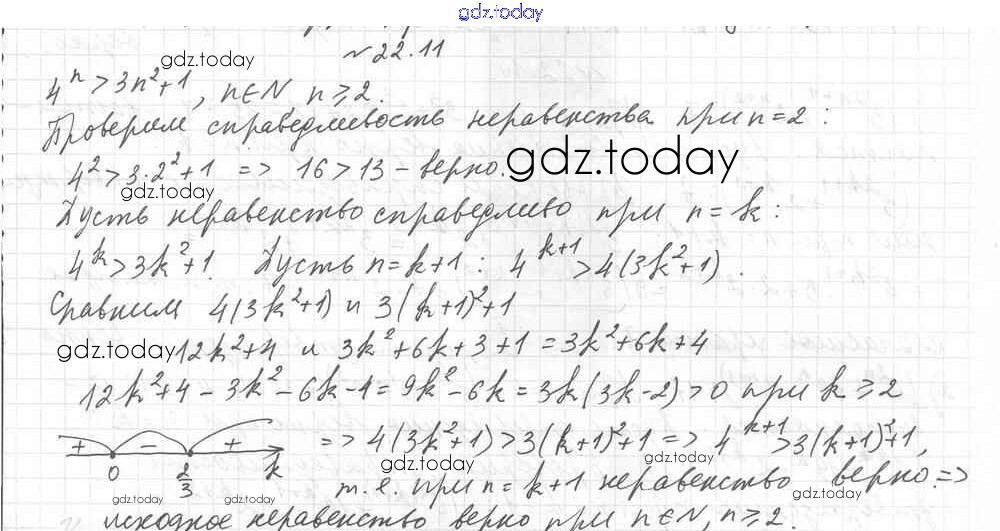 gdz.today
№22.11
gdz.today
4ⁿ > 3n²+1, n∈N n⩾2.
Проверим справедливость неравенства при n=2:
4² > 3·2²+1 => 16 > 13 – верно. gdz.today
gdz.today
Пусть неравенство справедливо при n=k:
4ᵏ > 3k²+1. Пусть n=k+1: 4ᵏ⁺¹ > 4(3k²+1).
Сравним 4(3k²+1) и 3(k+1)²+1
gdz.today 12k²+4 и 3k²+6k+3+1 = 3k²+6k+4
12k²+4 – 3k² – 6k – 4 = 9k² – 6k = 3k(3k–2) > 0 при k⩾2
+ – + => 4(3k²+1) > 3(k+1)²+1 => 4ᵏ⁺¹ > 3(k+1)²+1,
0 2/3 k gdz.today gdz.today
т.е. при n=k+1 неравенство верно. =>
gdz.today gdz.today gdz.today
исходное неравенство верно при n∈N, n⩾2.